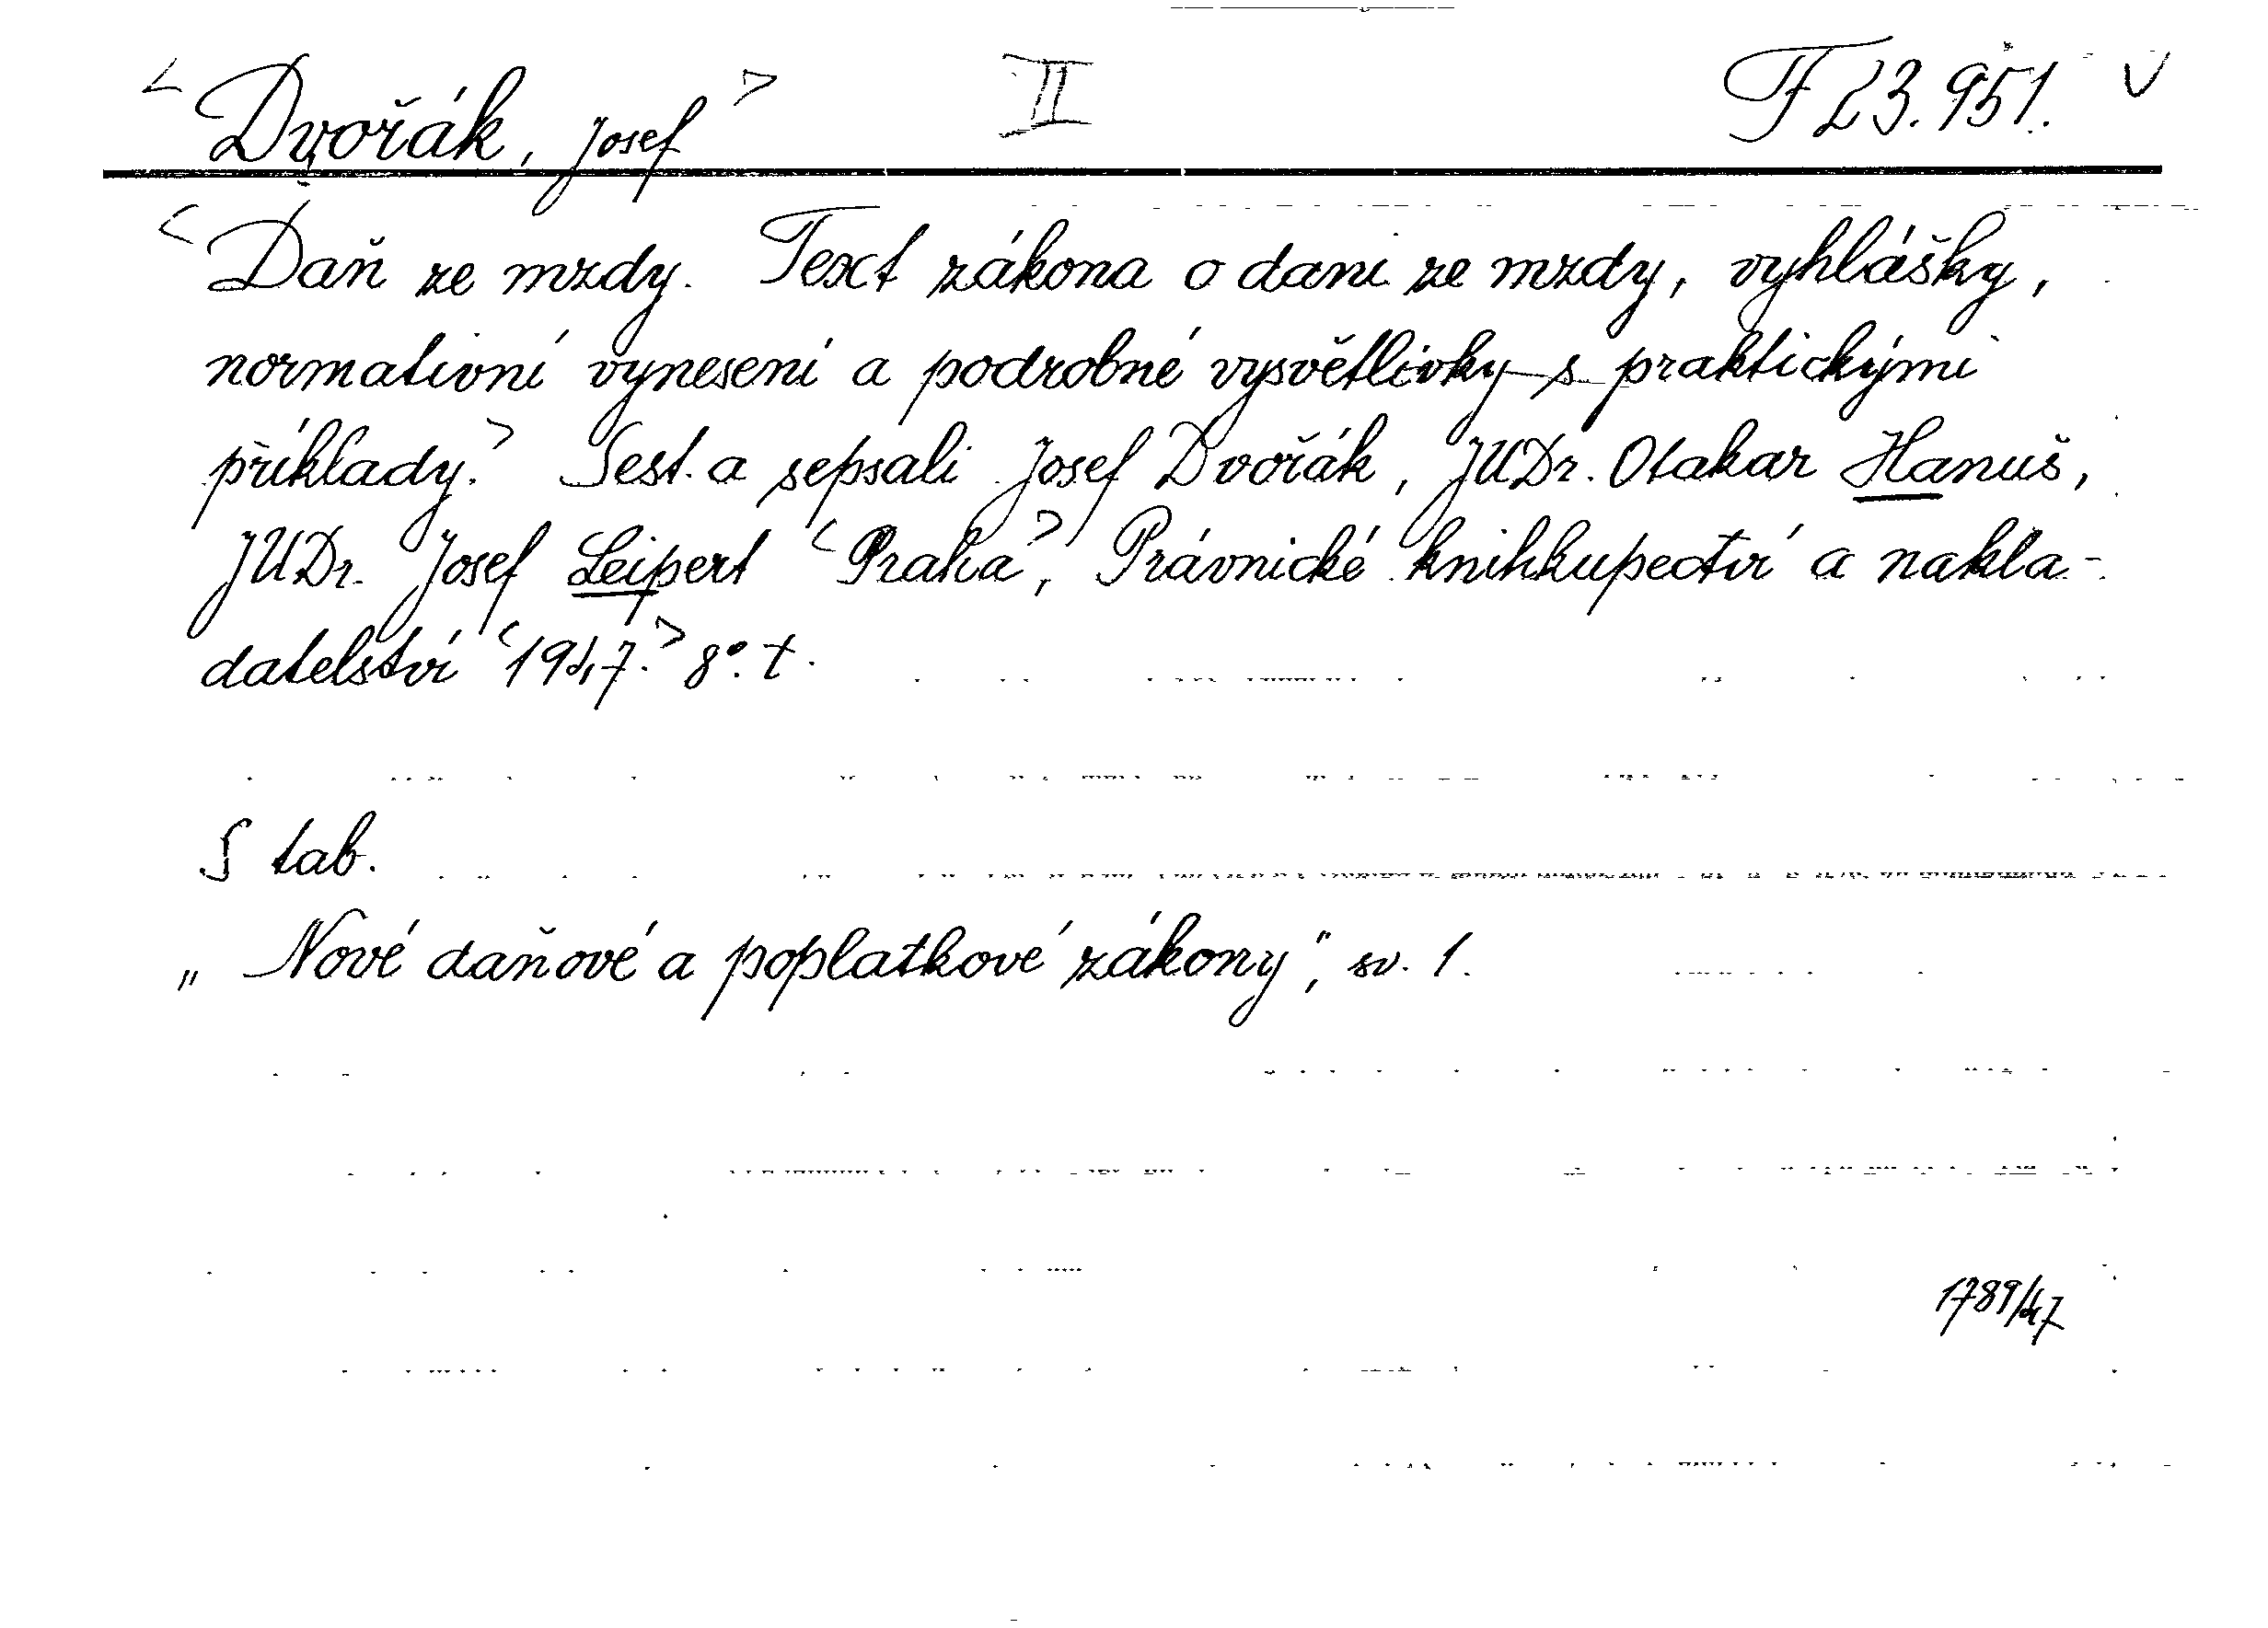 <Dvořák, Josef> II F 23.951. v
<Daň ze mzdy. Text zákona o dani ze mzdy, vyhlášky,
normativní vynesení a podrobné vysvětlivky s praktickými
příklady.> Sest. a sepsali Josef Dvořák, JUDr. Otakar Hanuš,
JUDr. Josef Leipert <Praha>, Právnické knihkupectví a nakla-
datelství <1947.> 8°. t.
S tab.
„Nové daňové a poplatkové zákony", sv. 1.
1789/47